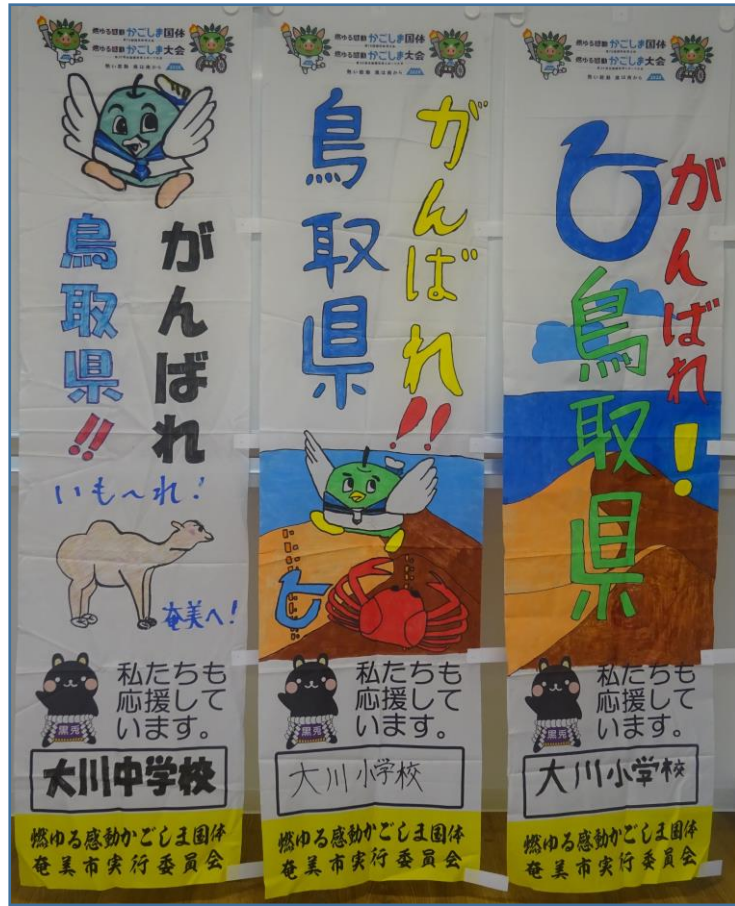 燃ゆる感動かごしま国体
燃ゆる感動かごしま大会
熱い鼓動 風は南から
鳥取県!!
がんばれ
いも~れ!
奄美へ!
黒兎
私たちも
応援して
います。
大川中学校
燃ゆる感動かごしま国体
奄美市実行委員会
燃ゆる感動かごしま国体
燃ゆる感動かごしま大会
熱い鼓動 風は南から
がんばれ!!
鳥取県
黒兎
私たちも
応援して
います。
大川小学校
燃ゆる感動かごしま国体
奄美市実行委員会
燃ゆる感動かごしま国体
燃ゆる感動かごしま大会
熱い鼓動 風は南から
がんばれ!
鳥取県
黒兎
私たちも
応援して
います。
大川小学校
燃ゆる感動かごしま国体
奄美市実行委員会